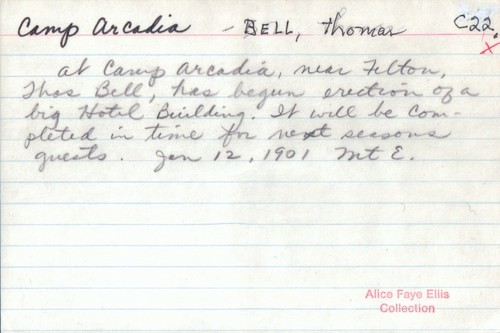 Camp Arcadia - BELL, Thomas C22.
at Camp Arcadia, near Felton,
Thos Bell, has begun erection of a
big Hotel Building. It will be com-
pleted in time for next seasons
guests. Jan 12, 1901 Mt E.
Alice Faye Ellis
Collection